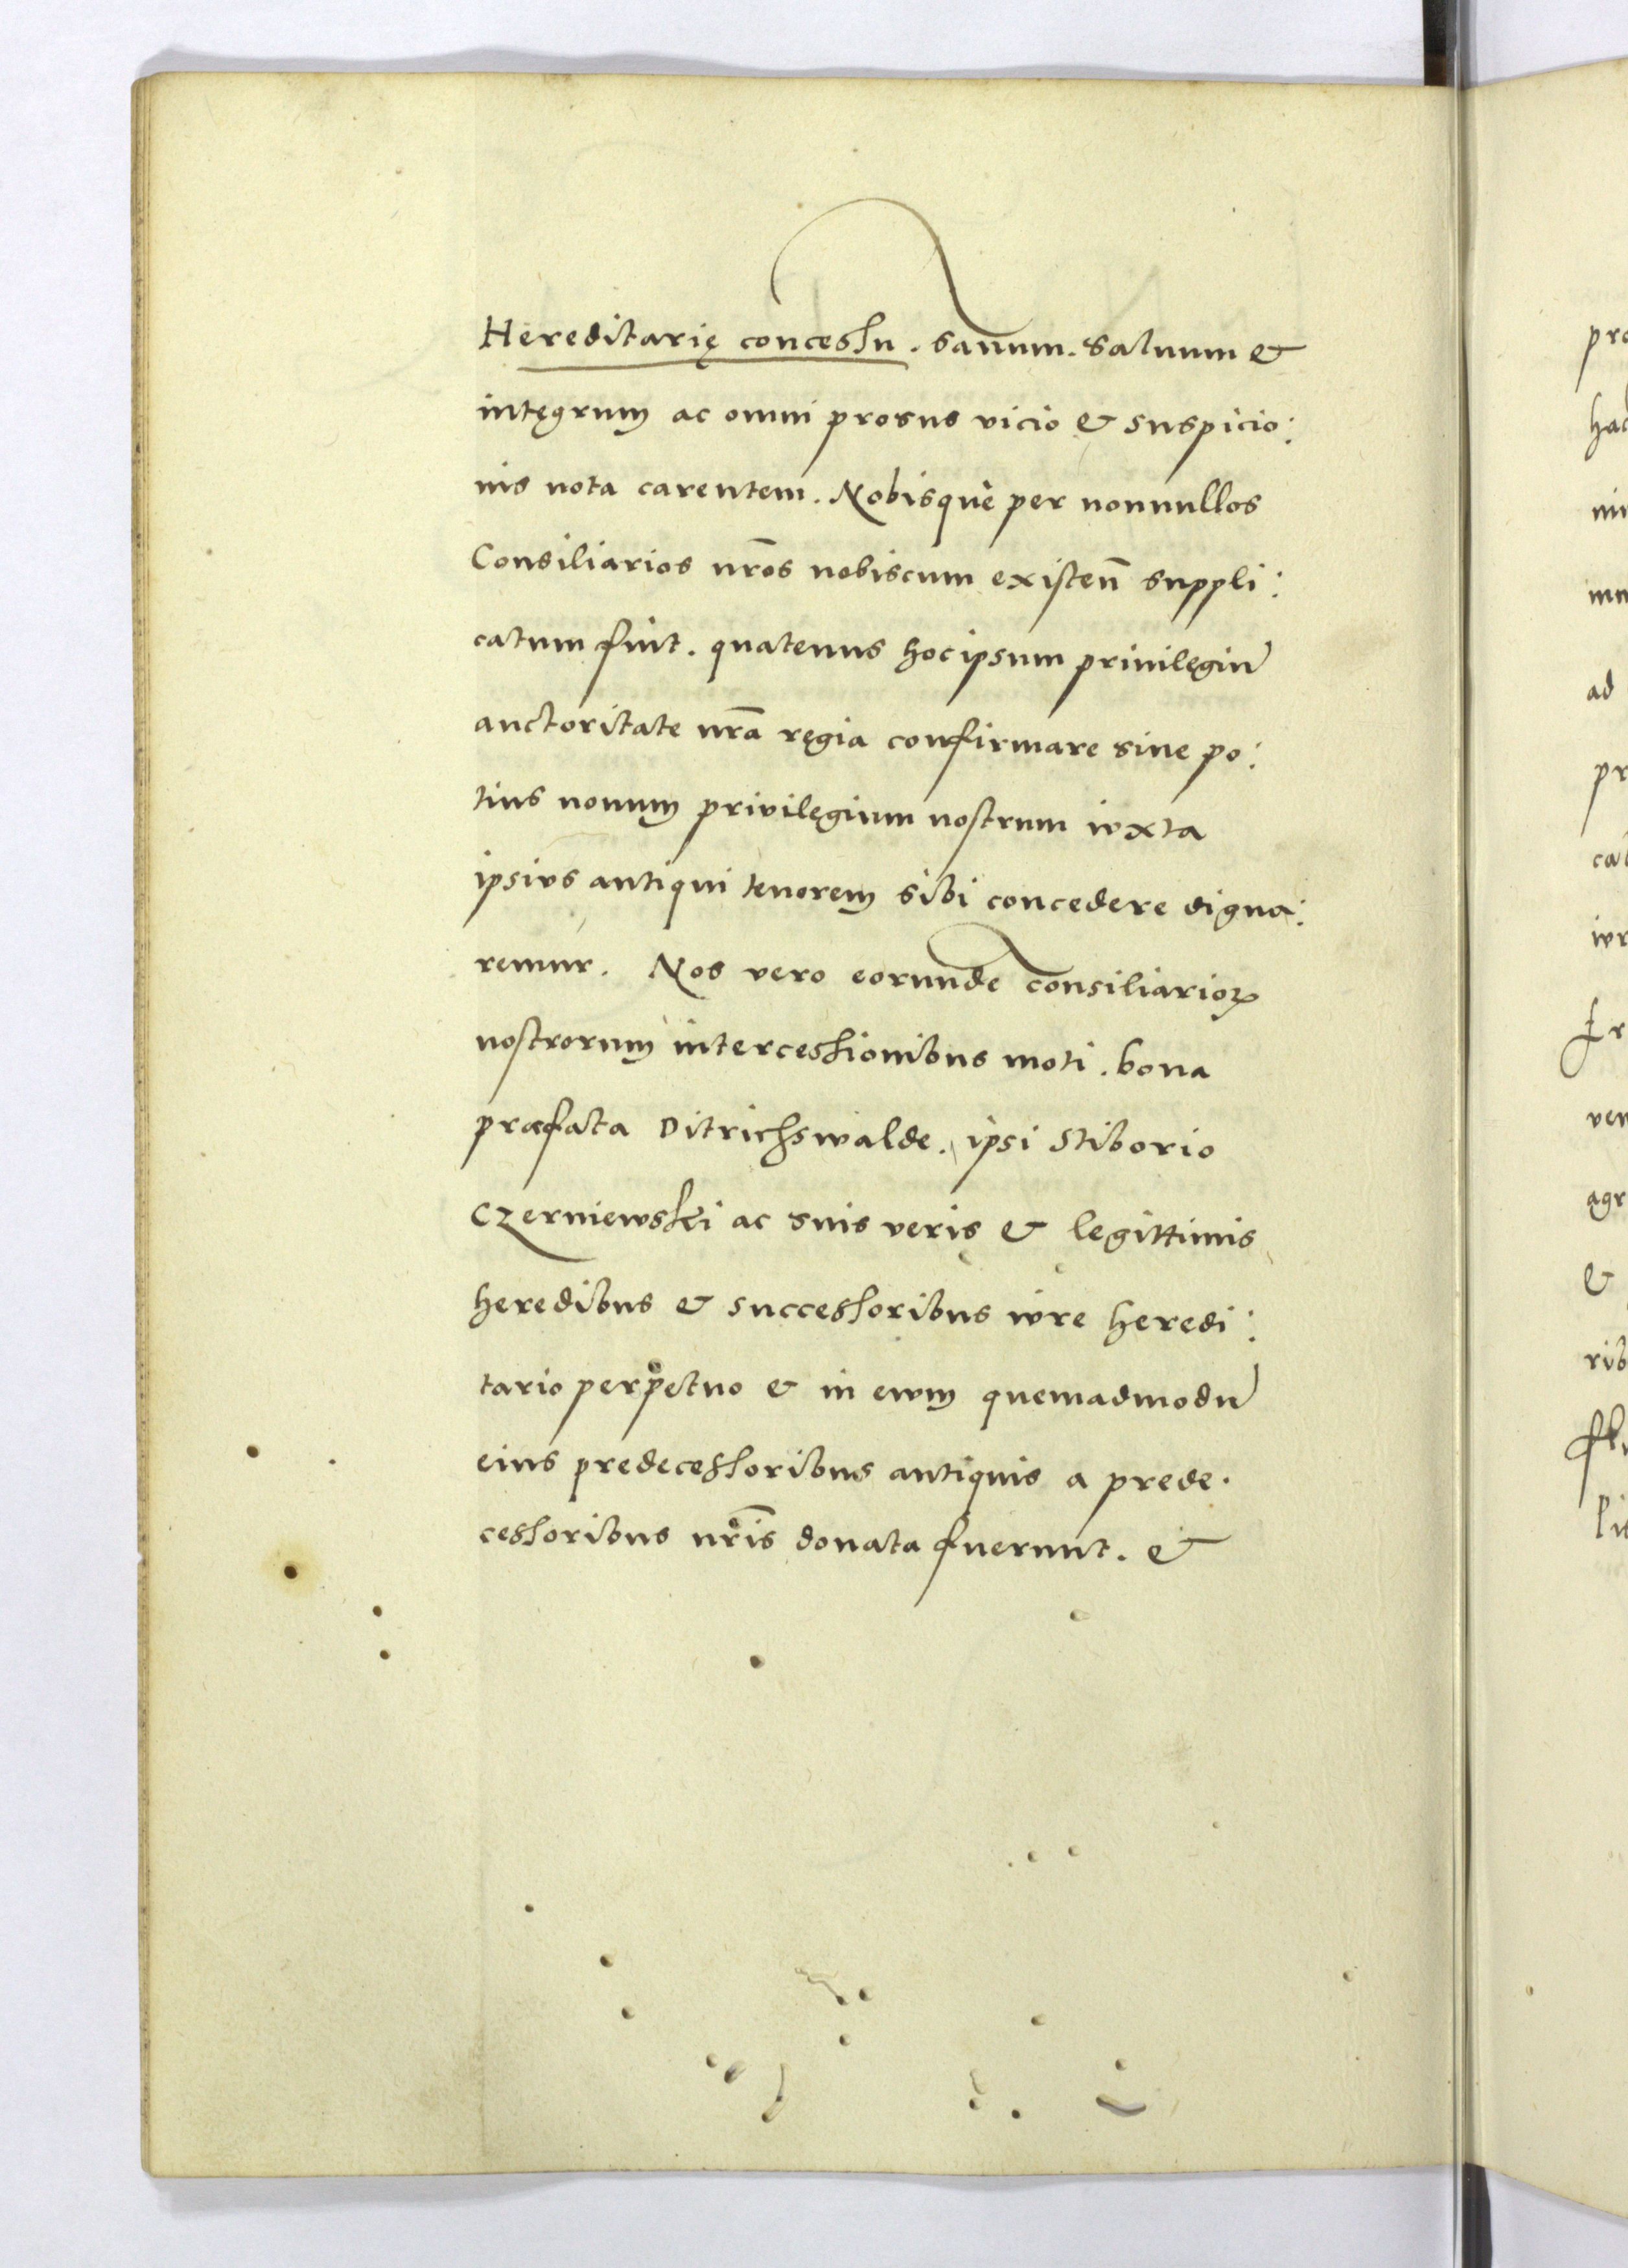 Hereditarię concessu . sanum . saluum &
integrum ac omni prosus vicio & suspicio:
nis nota carentem . Nobisquè per nonnullos
Consiliarios nr̃os nobiscum existeñ suppli:
catum fuit . quatenus hoc ipsum priuilęgiũ
auctoritate nr̃a ręgia confirmare siue po:
tius nouum privilęgium nostrum iuxta
ipsius antiqui tenorem sibi concedere digna:
remur . Nos vero eorundē consiliarioꝝ
nostrorum intercessionibus moti . bona
præfata Ditrichswalde . ipsi Stiborio
Czerniewski ac suis veris & legittimis
heredibus & successoribus iure heredi:
tario perpetuo & in ewm quemadmodũ
eius predecessoribus antiquis a prede.
cessoribus nr̃is donata fuerunt . &
pro
hac
ad
pr
cal
iur
Er
ven
agr
&
rib